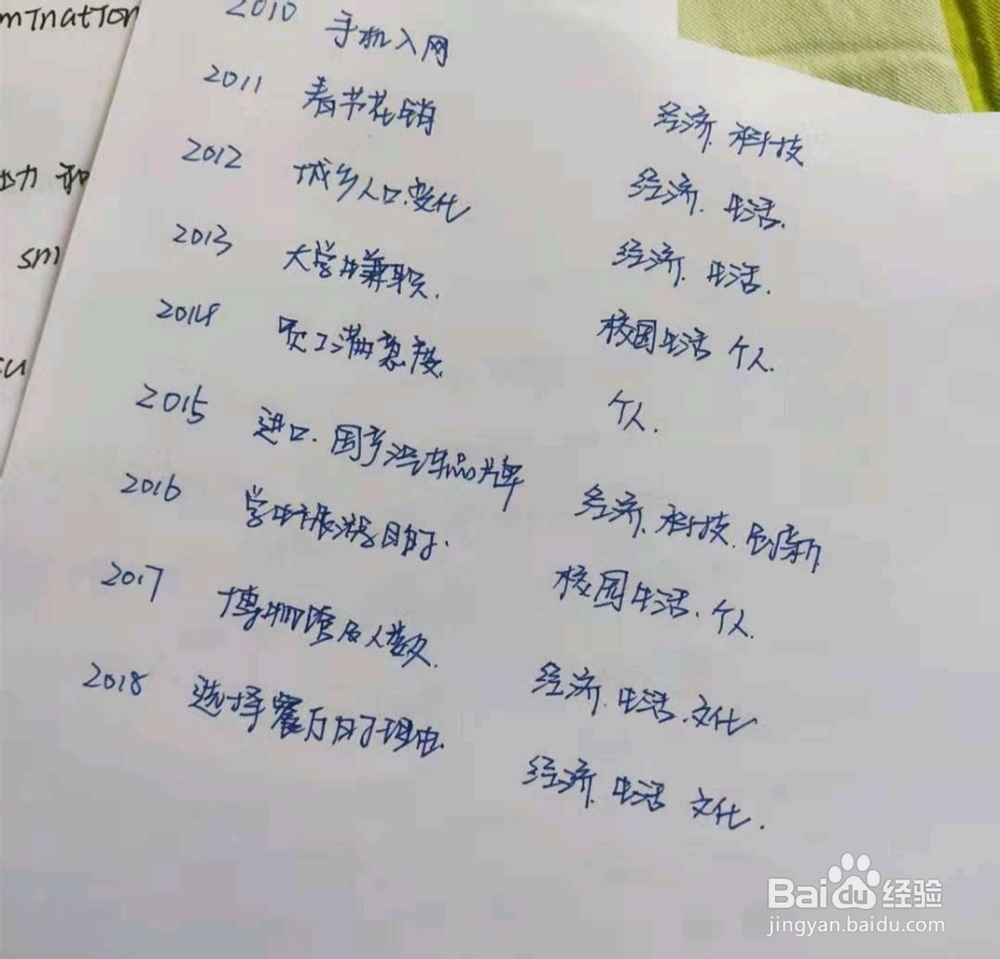 mination
动和
sm
2010 手机入网 经济.科技
2011 春节花销 经济.生活.
2012 城乡人口.变化 经济.生活.
2013 大学生兼职. 校园生活 个人.
2014 员工满意度. 个人.
2015 进口.国产汽车品牌 经济.科技.创新
2016 学生旅游目的. 校园生活.个人.
2017 博物馆及人数. 经济.生活.文化
2018 选择餐厅的理由. 经济.生活 文化.
Baidu经验
jingyan.baidu.com